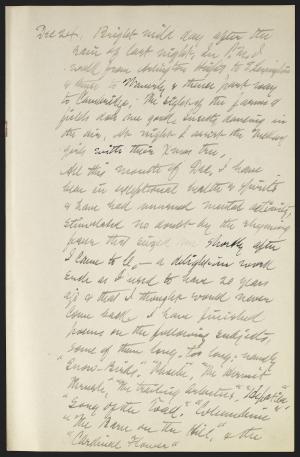 Dec 24. Bright mild day after the
rain of last night; in P.M. I
walk from Arlington Heights to Lexington
& thence to Waverly & thence part way
to Cambridge. The sight of the farms &
fields does one good. Insects dancing in
the air. At night I assist the
girls with their Xmas tree.
All this month of Dec. I have
been in exceptional health & spirits
& have had unusual mental activity,
stimulated no doubt by the rhyming
fever that seized me shortly after
I came to C. — a delight in work
such as I used to have 20 years
ago & that I thought would never
come back. I have finished
poems on the following subjects,
some of them long - too long: namely
"Snow-Birds," "Wheat," "The Hermit
Thrush," "The trailing Arbutus," "Hepatica"
"Song of the Toad," "Columbine"
"The Barn on the Hill," & the
"Cardinal Flower"